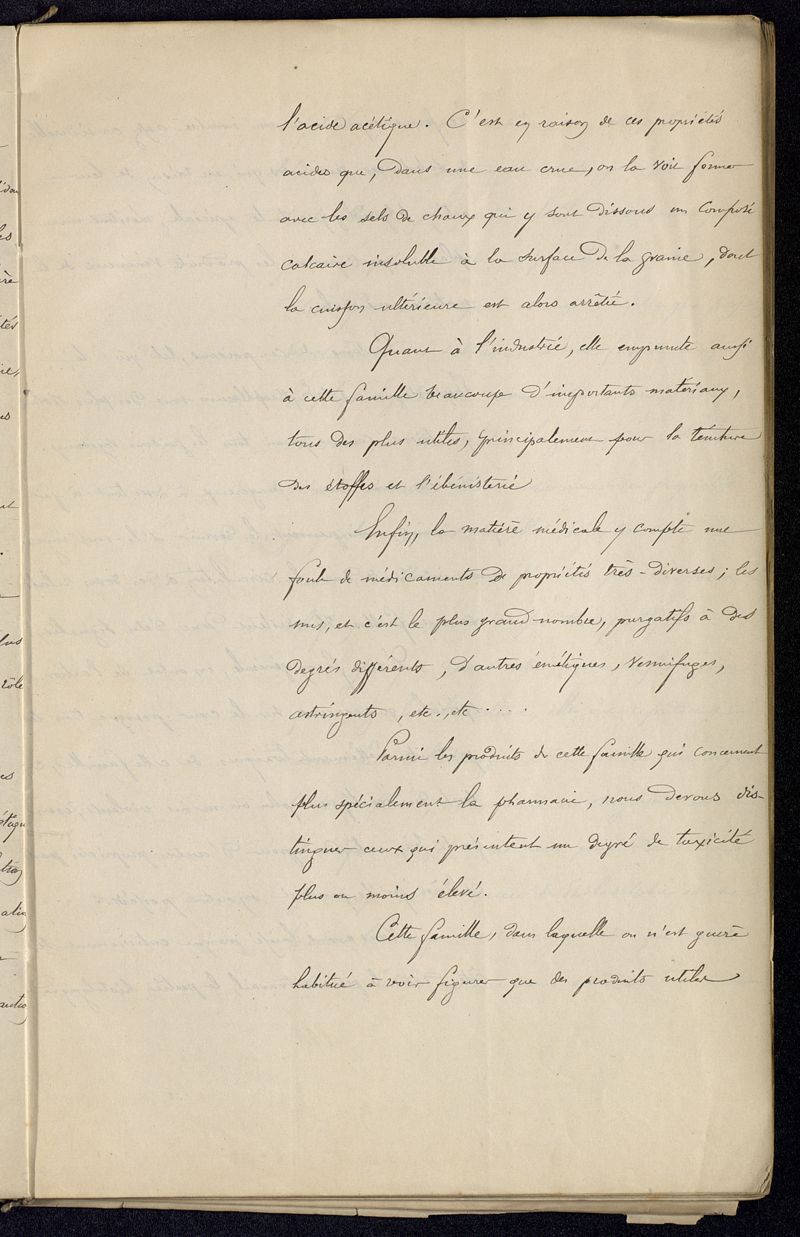 l'acide acétique. C'est en raison de ces propriétés
acides que, dans une eau crue, on la voit former
avec les sels de chaux qui y sont dissous un composé
calcaire insoluble à la surface de la graine, dont
la cuisson ultérieure est alors arrêtée.
Quant à l'industrie, elle emprunte aussi
à cette famille beaucoup d'importants matériaux,
tous des plus utiles, principalement pour la teinture
des étoffes et l'ébénisterie
Enfin, la matière médicale y compte une
foule de médicaments de propriétés très-diverses; les
uns, et c'est le plus grand nombre, purgatifs à des
degrés différents, d'autres émétiques, vermifuges,
astringents, etc., etc ....
Parmi les produits de cette famille qui concernent
plus spécialement la pharmacie, nous devons dis-
tinguer ceux qui présentent un degré de toxicité
plus ou moins élevé.
Cette famille, dans laquelle on n'est guère
habitué à voir figurer que des produits utiles